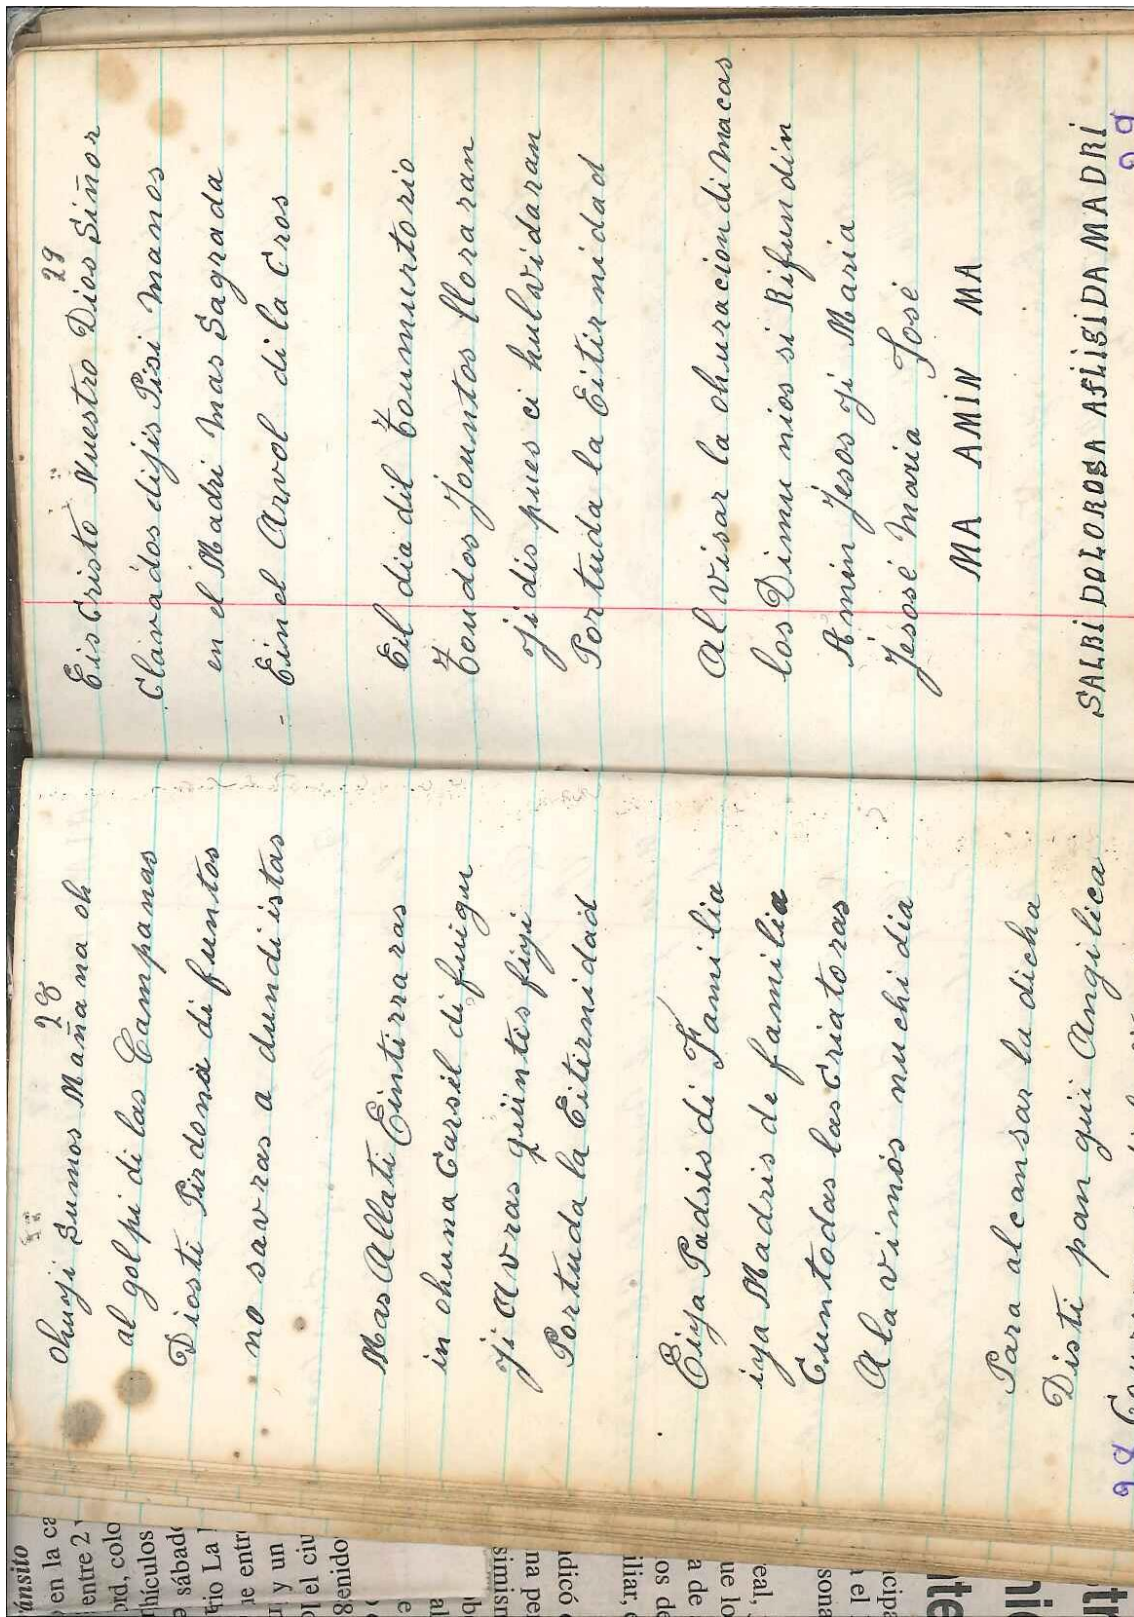 28
ohuoji Sumos Mañana oh
al golpi di las Campanas
Diosti Pirdona di funtos
no savras a dundi istas
Mas Allati Eintirraras
in ohuna Carsil di fuigu
Ji Avras qüintis figi
Portuda la Eitirnidad
Eiya Padris di Familia
iya Madris de familia
Cuntodas las Criatoras
A la vimos nuchi dia
Para alcansar la dicha
Disti pan qui Angilica
28
29
Eis Cristo Nuestro Dios Siñor
Clavados dijis Pisi manos
en el Madri mas Sagrada
Ein el Arvol di la Cros
Eil dia dil Toumurtorio
Toudos Jountos lloraran
Ji dis pues ci hulvidaran
Portuda la Eitirnidad
Al visar la ohuracion di macas
los Dimunios si Rifundin
Amin Jesos Ji Maria
Jesosé Maria José
MA AMIN MA
SALBI DOLOROSA AFLIGIDA MADRI
29
ánsito
en la ca
entre 2
ord, colo
hículos
sábado
rio La
ne entre
y un
el ciu
genido